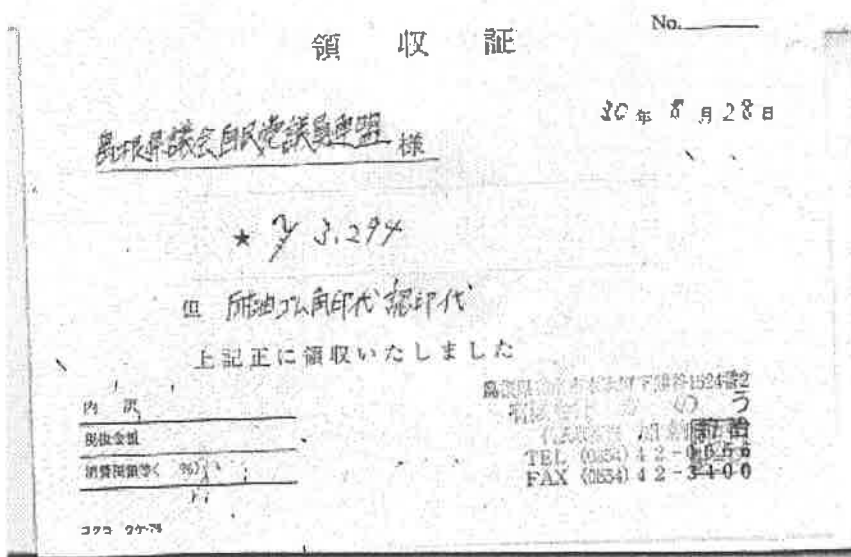 No.
領収証
30年8月28日
島根県議会自民党議員連盟 様
★ ¥3,294
但 耐油ゴム角印代 認印代
上記正に領収いたしました
内訳
税抜金額
消費税額等( %)
下熊谷1524番2
のう
TEL (0854) 42-0556
FAX (0854) 42-3400